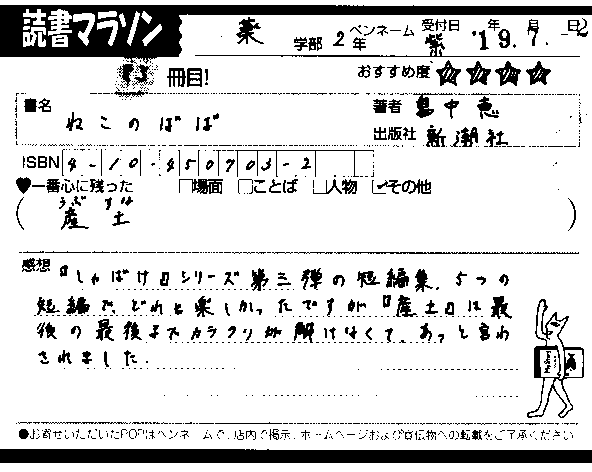 読書マラソン
薬 学部 2年 ペンネーム 紫 受付日 '19年 7月 2日
冊目!
おすすめ度 ☆☆☆☆
書名 ねこのばば
著者 畠中 恵
出版社 新潮社
ISBN 4-10-450703-2
♥一番心に残った □場面 □ことば □人物 ☑その他
(産土 うぶすな)
感想 『しゃばけ』シリーズ第三弾の短編集。5つの
短編で、どれも楽しかったですが『産土』は最
後の最後までカラクリが解けなくて、あっと言わ
されました。
●お寄せいただいたPOPはペンネームで、店内で掲示、ホームページおよび宣伝物への転載をご了承ください